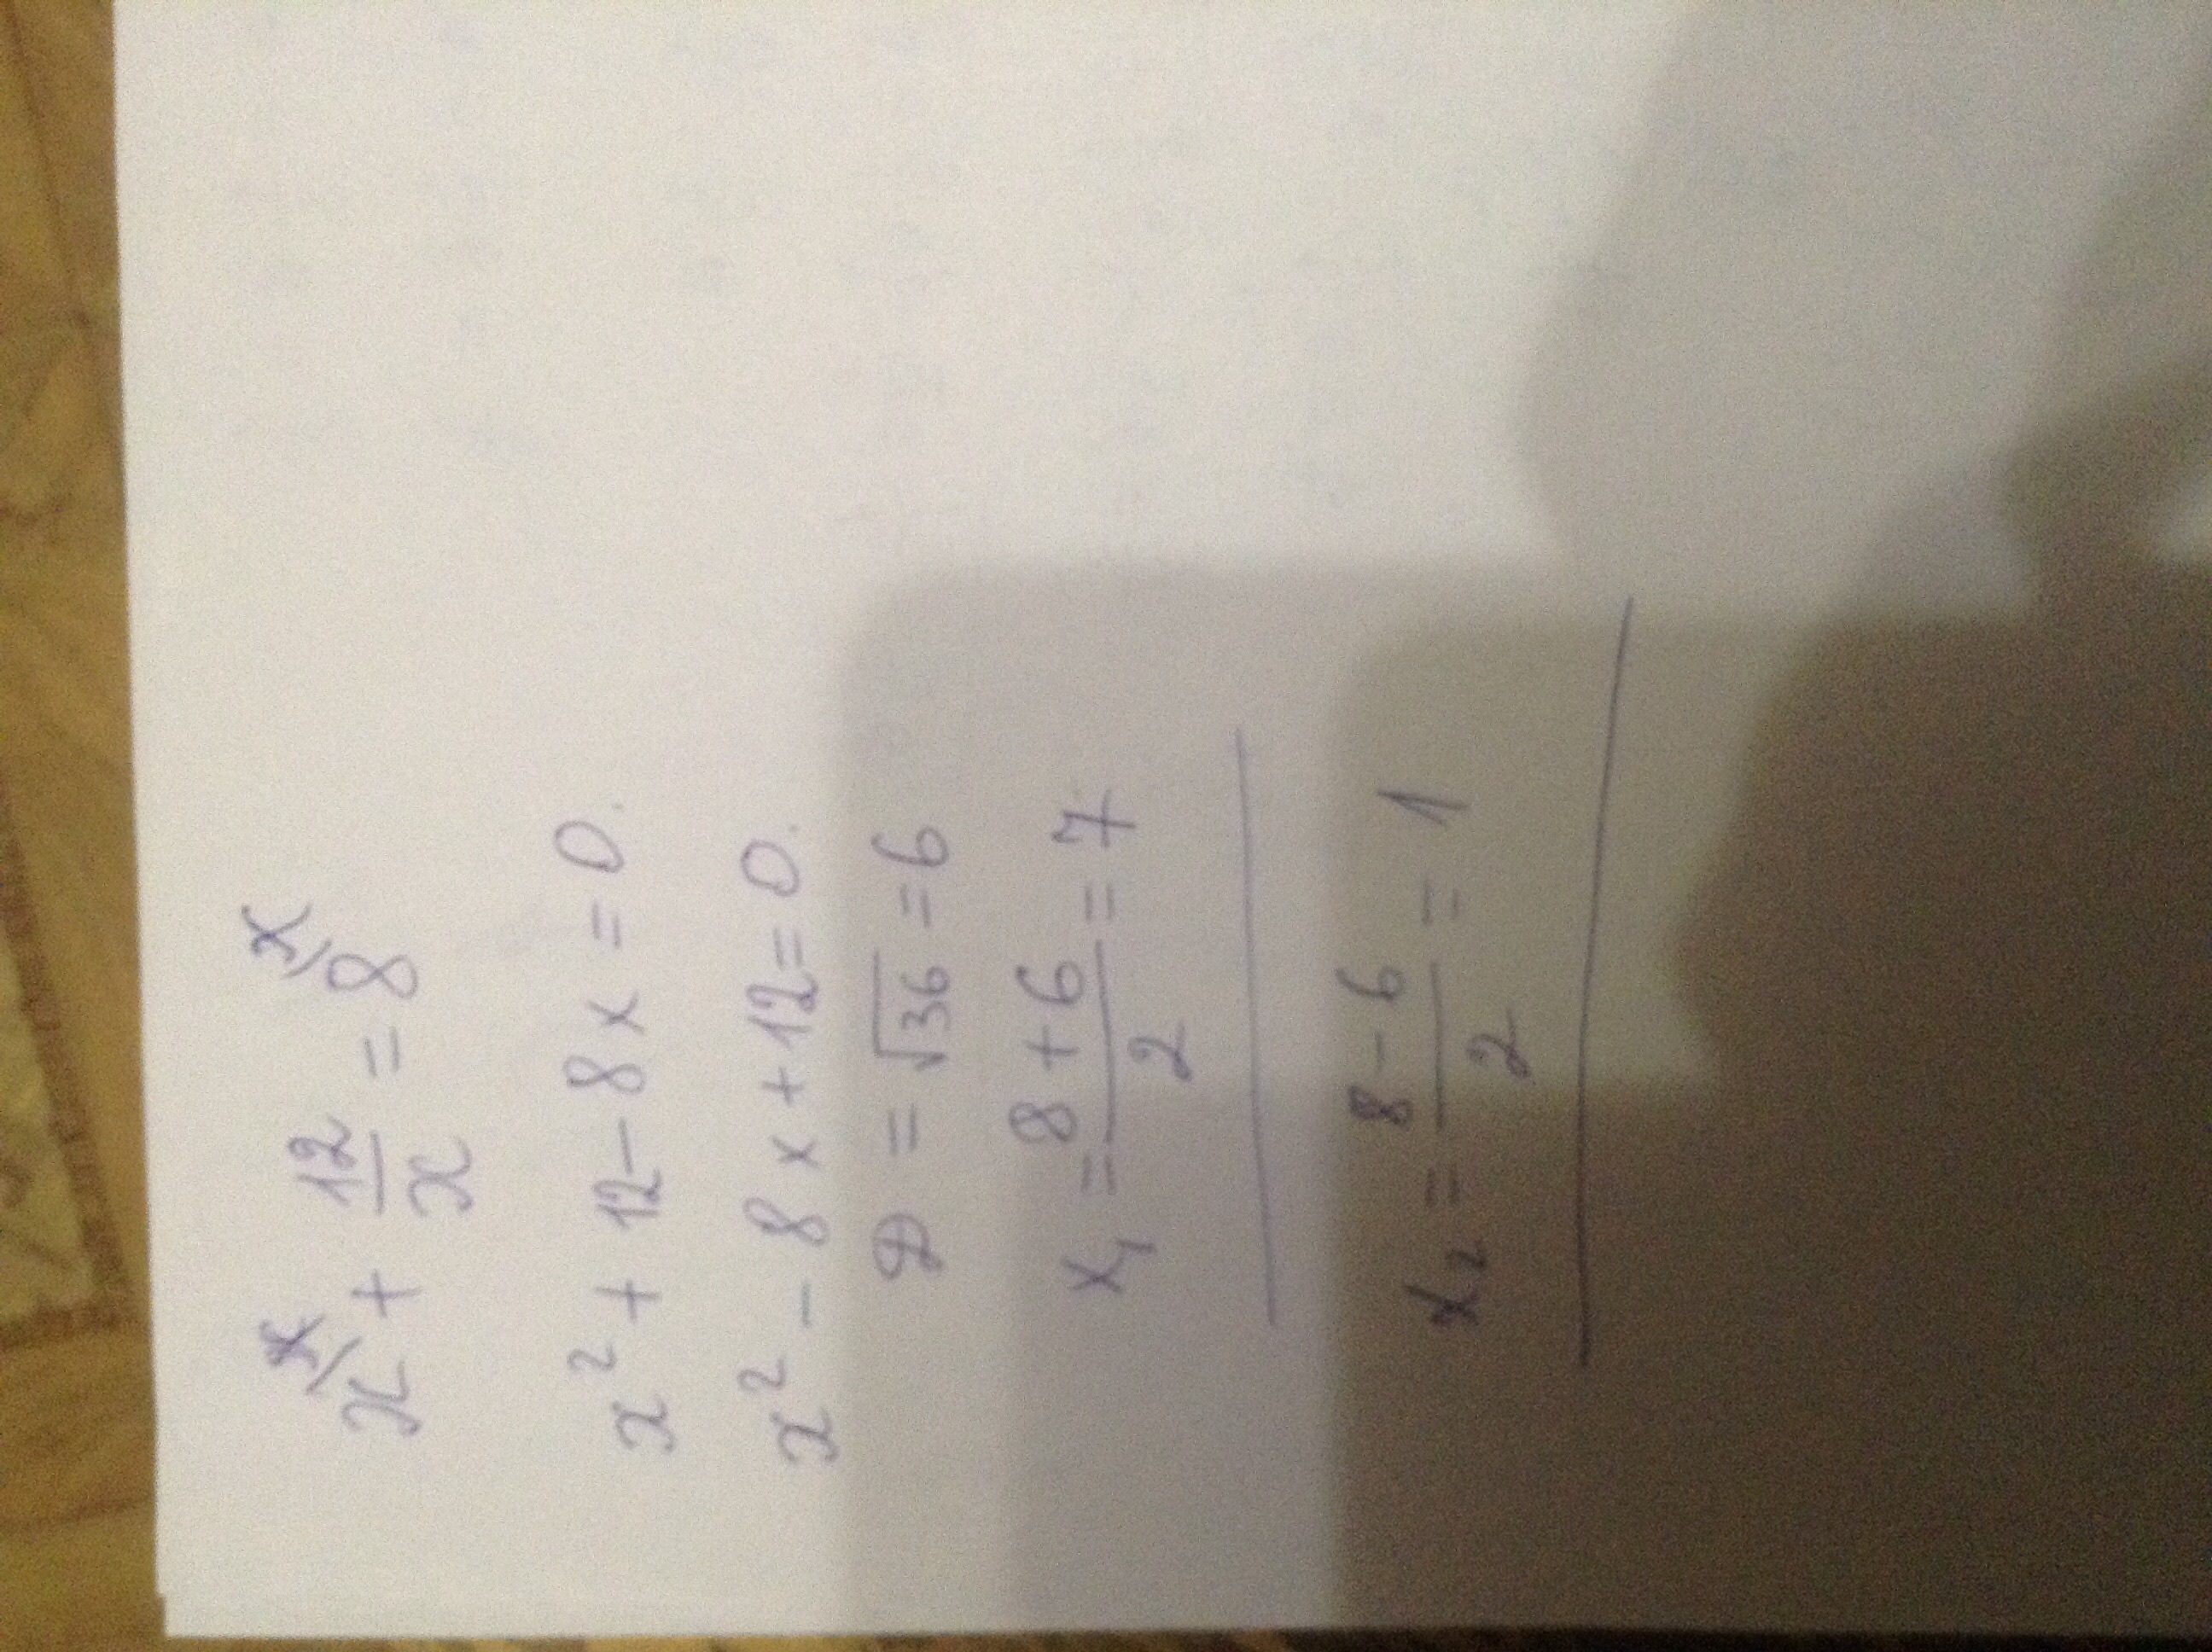 x^{x} + 12/x = 8^{x}
x² + 12 - 8x = 0.
x² - 8x + 12 = 0.
D = √36 = 6
x₁ = (8 + 6)/2 = 7
x₂ = (8 - 6)/2 = 1